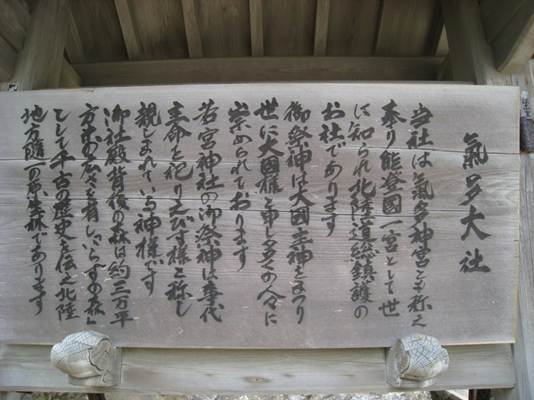 氣多大社
当社は氣多神宮とも称え
奉り能登國一宮として世
に知られ北陸道総鎮護の
お社であります
御祭神は大國主神をまつり
世に大国様と申し多くの人々に
崇められております
若宮神社の御祭神は事代
主命を祀りえびす様と称し
親しまれている神様です
御社殿背後の森は約三万平
方米の広さを有し入らずの森と
して千古の歴史を伝え北陸
地方随一の原生林であります